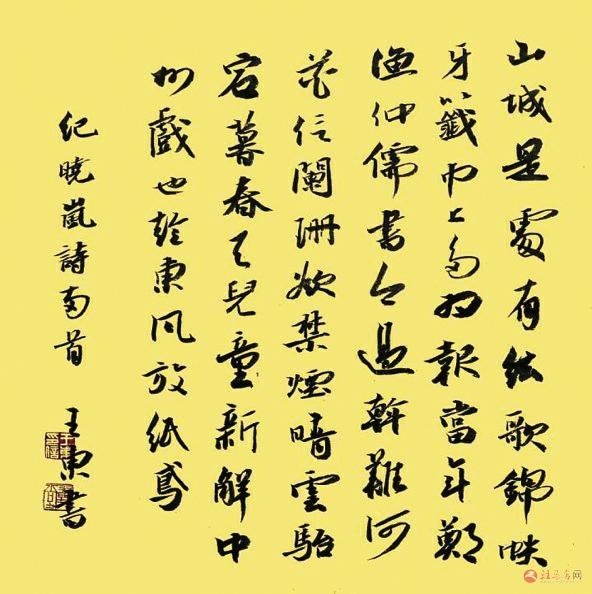 山城是處有絃歌錦帙
牙籤市上多為報當年鄭
漁仲儒書今過斡難河
花信闌珊欲禁煙晴雲駘
宕暮春天兒童新解中
州戲也趁東風放紙鳶
紀曉嵐詩兩首
王東書
驻马店网